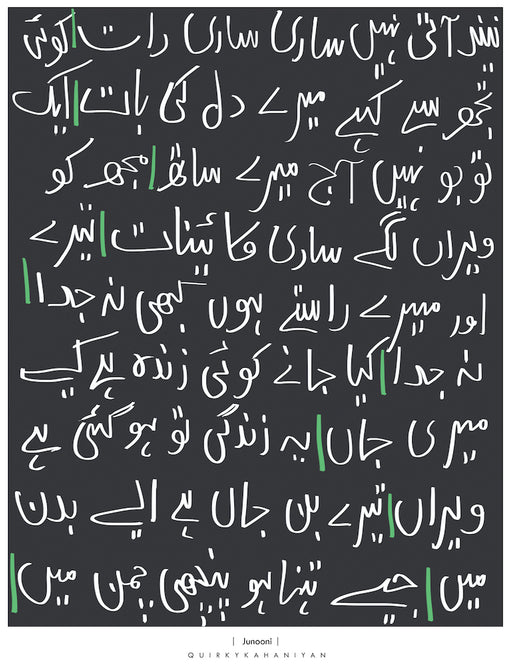 نیند آتی نہیں ساری ساری رات | کوئی
تجھ سے کہے میرے دل کی بات | ایک
تو ہو نہیں آج میرے ساتھ | مجھ کو
ویراں لگے ساری کائنات | تیرے
اور میرے راستے ہوں کبھی نہ جدا |
نہ جدا | کیا جانے کوئی زندہ ہے کیسے
میری جاں | یہ زندگی تو ہو گئی ہے
ویراں | تیرے بن جاں ہے ایسے بدن
میں | جیسے تنہا ہو پنچھی چمن میں |
| Junooni |
QUIRKYKAHANIYAN